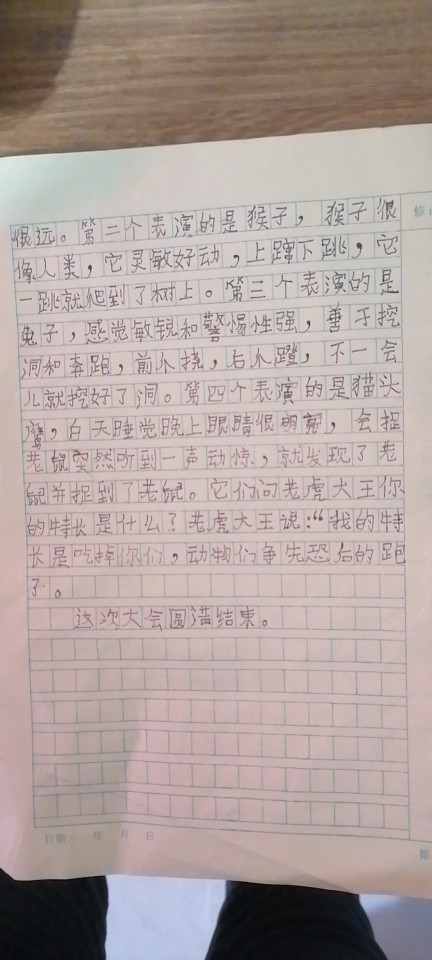 很远。第二个表演的是猴子，猴子很
像人类，它灵敏好动，上蹿下跳，它
一跳就爬到了树上。第三个表演的是
兔子，感觉敏锐和警惕性强，善于挖
洞和奔跑，前爪挠，后爪蹬，不一会
儿就挖好了洞。第四个表演的是猫头
鹰，白天睡觉晚上眼睛很明亮，会捉
老鼠突然听到一声动惊，就发现了老
鼠并捉到了老鼠。它们问老虎大王你
的特长是什么？老虎大王说：“我的特
长是吃掉你们，动物们争先恐后的跑
了。
这次大会圆满结束。
日期 年 月 日
修
第